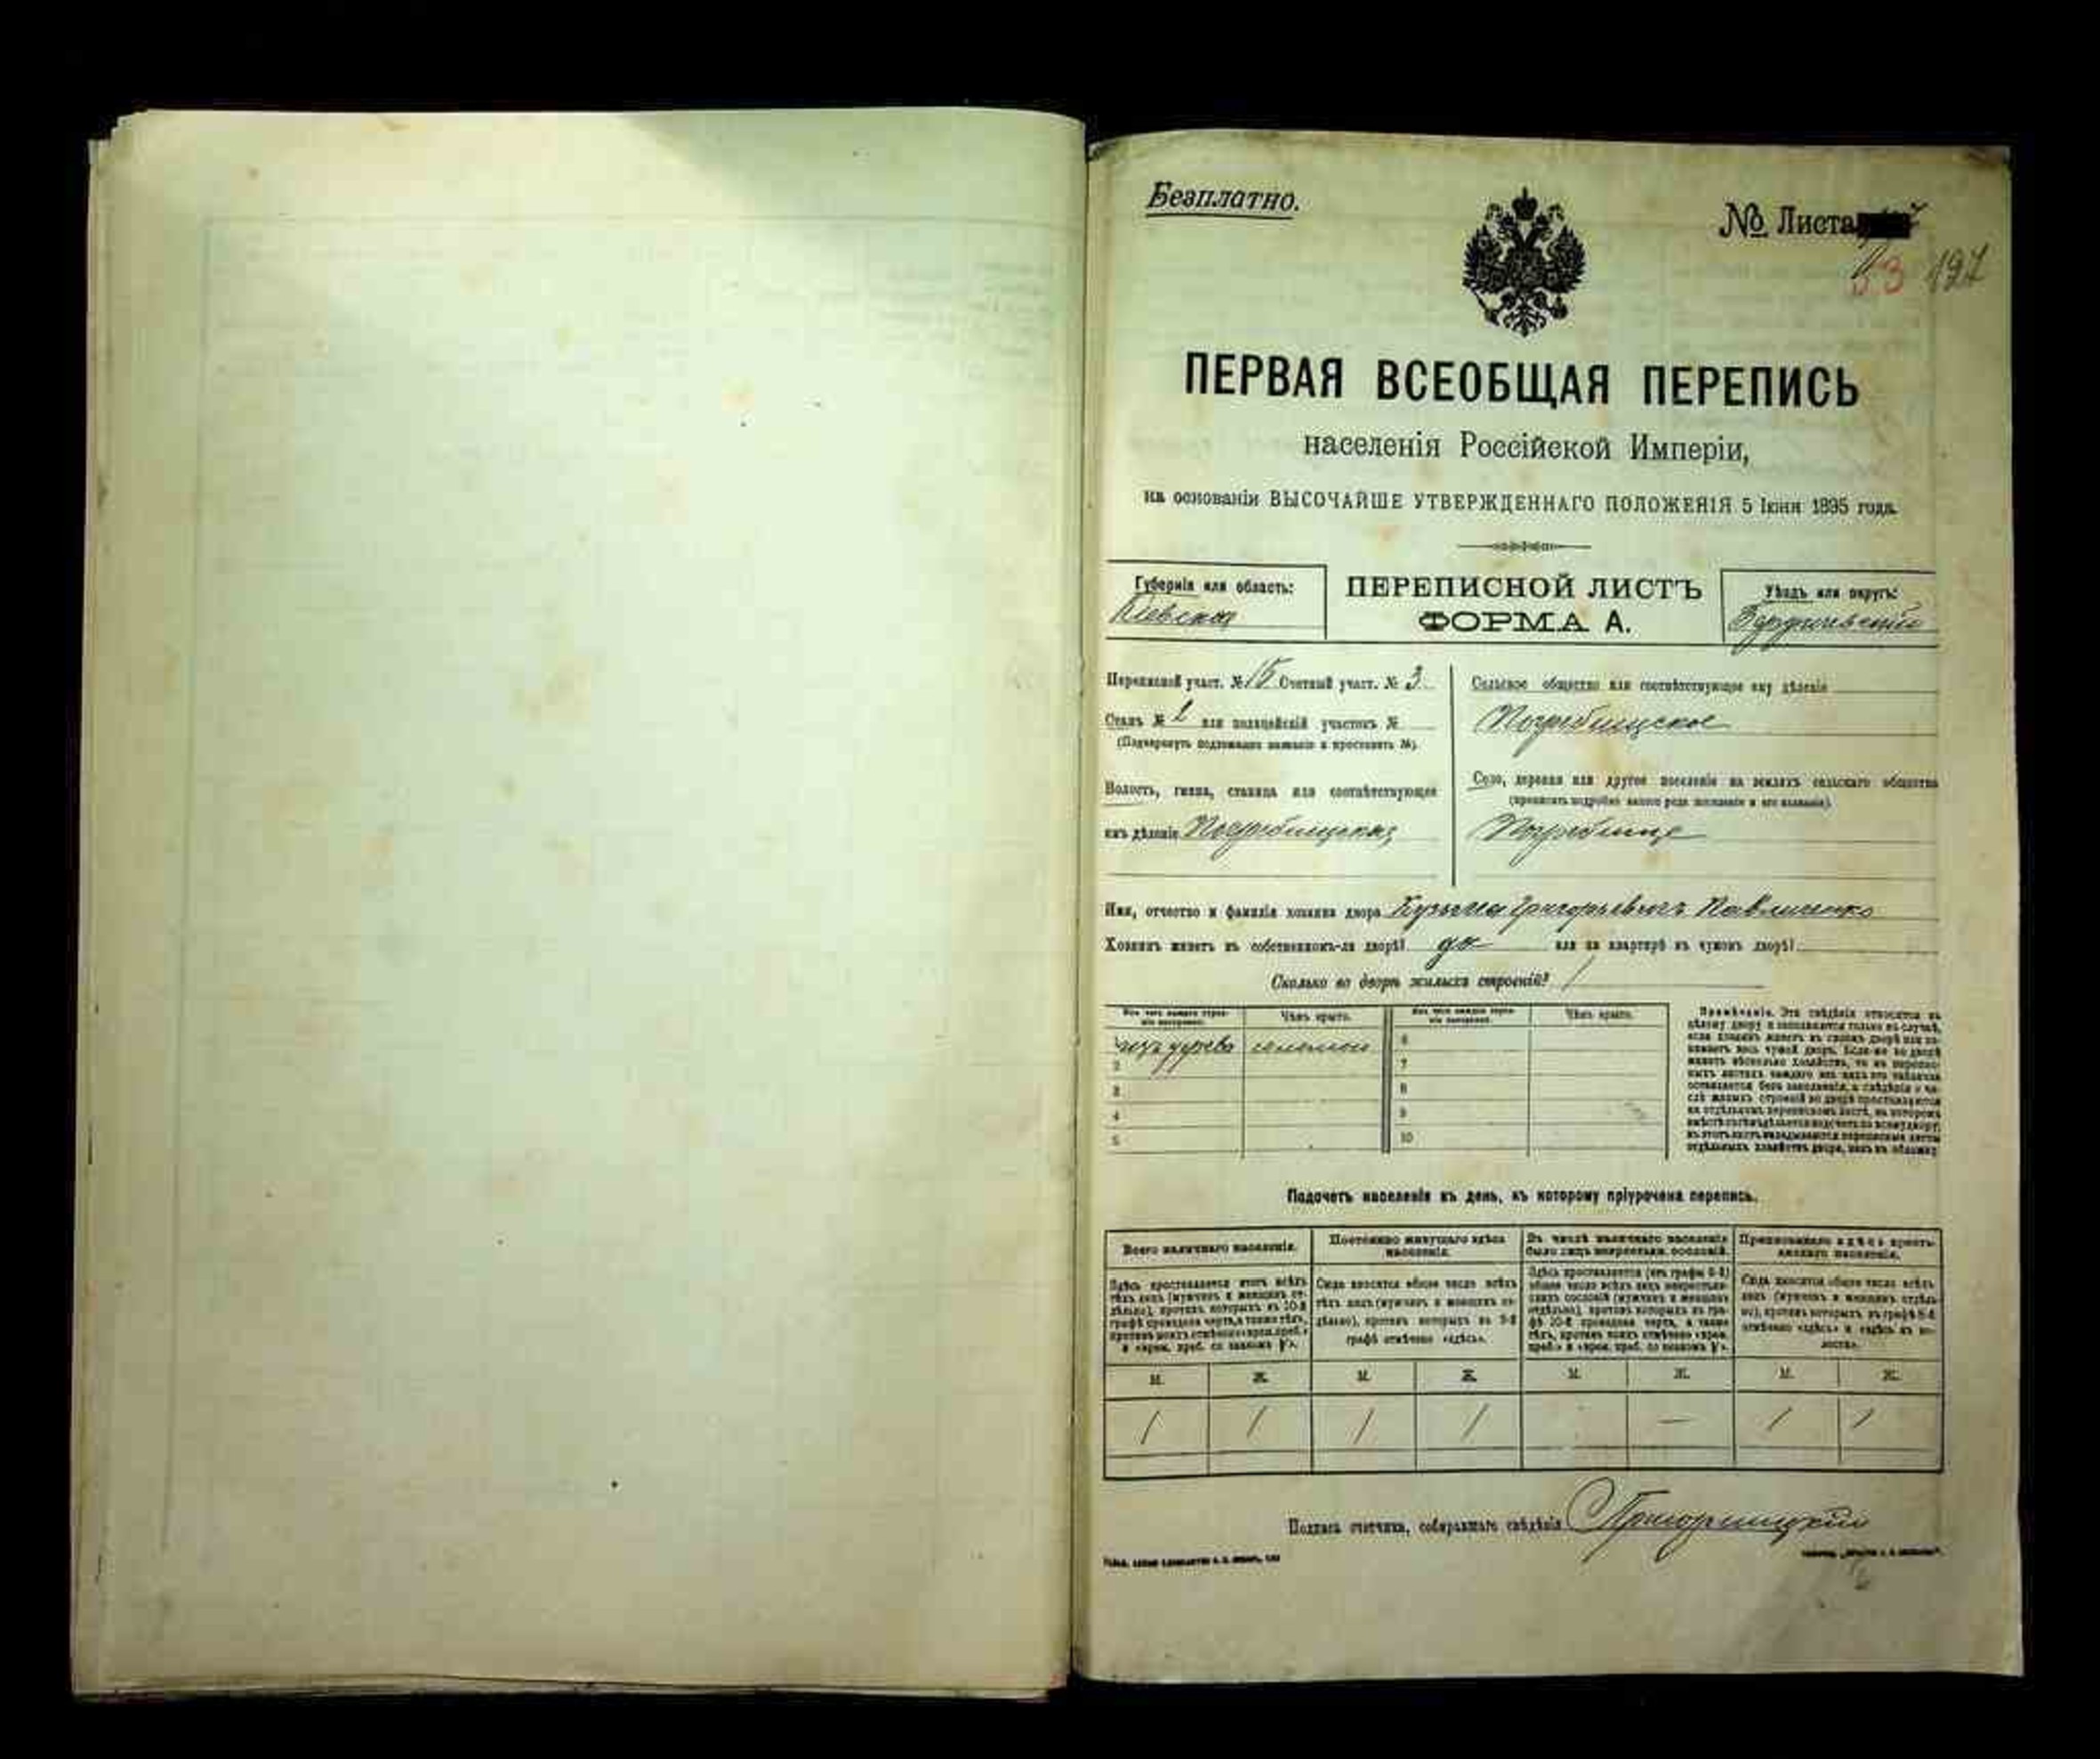 Безплатно.
№ Листа
33 127
ПЕРВАЯ ВСЕОБЩАЯ ПЕРЕПИСЬ
населенія Россійской Имперіи,
на основаніи ВЫСОЧАЙШЕ УТВЕРЖДЕННАГО ПОЛОЖЕНІЯ 5 Іюня 1895 года.
Губернія или область:
Кіевская
ПЕРЕПИСНОЙ ЛИСТЪ
ФОРМА А.
Уѣздъ или округъ:
Бердичевскій
Переписной участ. № 15 Счетный участ. № 3
Станъ № 2 или полицейскій участокъ №
(Подчеркнуть подлежащее названіе и проставить №)
Волость, гмина, станица или соотвѣтствующее
имъ дѣленіе Погребищская
Сельское общество или соотвѣтствующее ему дѣленіе
Погребищское
Село, деревня или другое поселеніе на земляхъ сельскаго общества
(прописать подробно какого рода поселеніе и его названіе)
Погребище
Имя, отчество и фамилія хозяина двора Кузьма Григорьевичъ Павличенко
Хозяинъ живетъ въ собственномъ-ли дворѣ? да или на квартирѣ въ чужомъ дворѣ?
Сколько во дворѣ жилыхъ строеній? 1
Изъ чего каждое строеніе построено. Чѣмъ крыто. Изъ чего каждое строеніе построено. Чѣмъ крыто.
1 изъ дерева соломой 6
2 7
3 8
4 9
5 10
Примѣчаніе. Эти свѣдѣнія относятся къ
цѣлому двору и заполняются только въ случаѣ,
если хозяинъ живетъ въ своемъ дворѣ или за-
нимаетъ весь чужой дворъ. Если-же во дворѣ
живетъ нѣсколько хозяйствъ, то въ перепис-
ныхъ листахъ каждаго изъ нихъ эта табличка
оставляется безъ заполненія, а свѣдѣнія о чи-
слѣ жилыхъ строеній во дворѣ проставляются
на отдѣльномъ переписномъ листѣ, на которомъ
вмѣстѣ съ тѣмъ дѣлается подсчетъ по всему двору;
въ этотъ листъ вкладываются переписные листы
отдѣльныхъ хозяйствъ двора, какъ въ обложку
Подсчетъ населенія въ день, къ которому пріурочена перепись.
Всего наличнаго населенія.
Здѣсь проставляется итогъ всѣхъ
тѣхъ лицъ (мужчинъ и женщинъ от-
дѣльно), противъ которыхъ въ 10-й
графѣ проведена черта, а также тѣхъ,
противъ коихъ отмѣчено «врем. преб.»
Постоянно живущаго здѣсь
населенія.
Сюда вносится общее число всѣхъ
тѣхъ лицъ (мужчинъ и женщинъ от-
дѣльно), противъ которыхъ въ 9-й
графѣ отмѣчено «здѣсь».
Въ числѣ наличнаго населенія
было лицъ некрестьян. сословій.
Здѣсь проставляется (изъ графы 8-й)
общее число всѣхъ лицъ некрестьян-
скихъ сословій (мужчинъ и женщинъ
отдѣльно), противъ которыхъ въ гра-
фѣ 10-й проведена черта, а также
тѣхъ, противъ коихъ отмѣчено «врем.
Приписаннаго здѣсь кресть-
янскаго населенія.
Сюда вносится общее число всѣхъ
лицъ (мужчинъ и женщинъ отдѣль-
но), противъ которыхъ въ графѣ 8-й
отмѣчено «здѣсь» и «здѣсь въ во-
лости».
М. Ж. М. Ж. М. Ж. М. Ж.
1 1 1 1 — 1 1
Подпись счетчика, собиравшаго свѣдѣнія